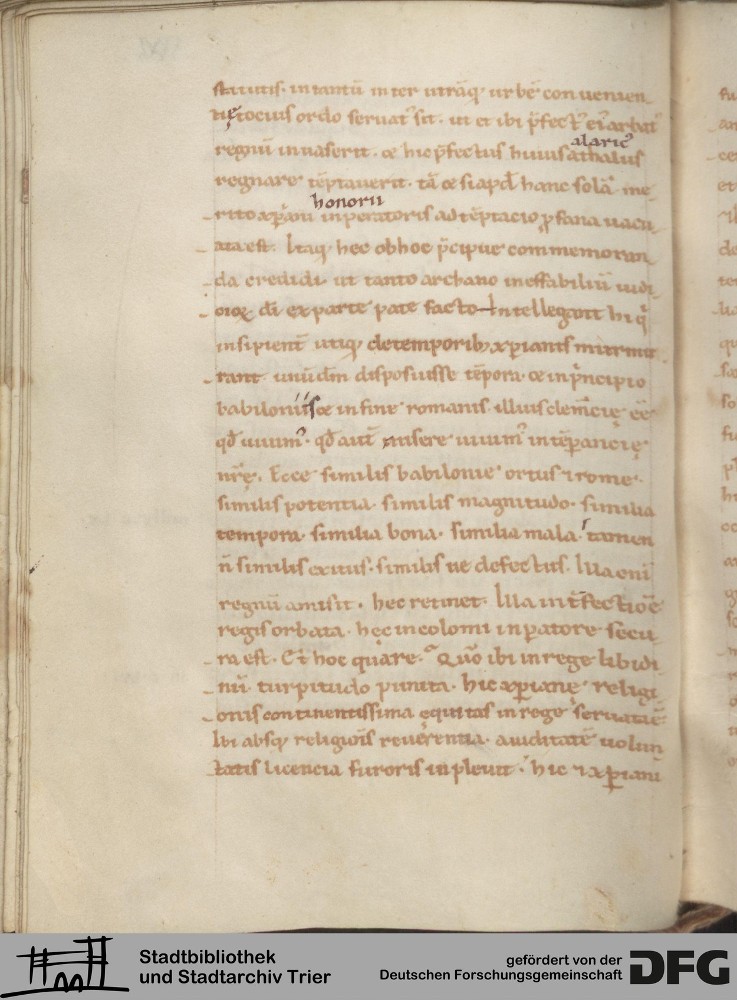 statutis. in tantū inter utrāq; urbē conuenien
tię tocius ordo seruat᷒ sit. ut et ibi p̄fect᷒ ei᷒ arbat᷒
alaric᷒
regnū inuaserit. & hic p̄fectus huius attalus
regnare tēptauerit. tā & si apd̄ hanc solā me
honorii
rito xp̄iani inperatoris ad tēptacio ꝓfana uacu
ata est. Itaq; hec ob hoc p̄cipue commemoran
da credidi. ut tanto archano ineffabiliū iudi
cioꝝ dī ex parte patefacto Intellegant hi q̄
insipient̄ utiq; de temporib; xp̄ianis murmu
rant. unū dm̄ disposuisse tēpora. & in p̄ncipio
babiloniis & in fine romanis. illius clem̄cię eē
qd̄ uiuim᷒. qd̄ aut̄ misere uiuim᷒ intēperancię
nr̄ę. Ecce similis babilonie ortus & rome.
similis potentia. similis magnitudo. similia
tempora. similia bona. similia mala. tamen
n̄ similis exitus. similis ue defectus. Illa eni
regnū amisit. hec retinet. Illa int̄fectiōe
regis orbata. hęc incolomi inꝑatore secu
ra est. Et hoc quare. Qm̄ ibi in rege libidi
nū turpitudo punita. hic xp̄iane religi
onis continentissima equitas in rege seruata ē
Ibi absq; religiōis reuerentia. auiditatē uolun
tatis licencia furoris inpleuit. hic & xp̄iani
Stadtbibliothek
und Stadtarchiv Trier
gefördert von der
Deutschen Forschungsgemeinschaft
DFG